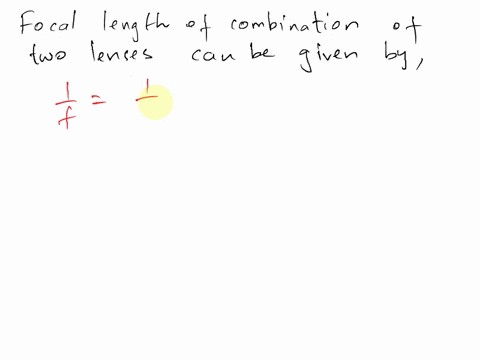 Focal length of combination of
two lenses can be given by,
1/f = 1/